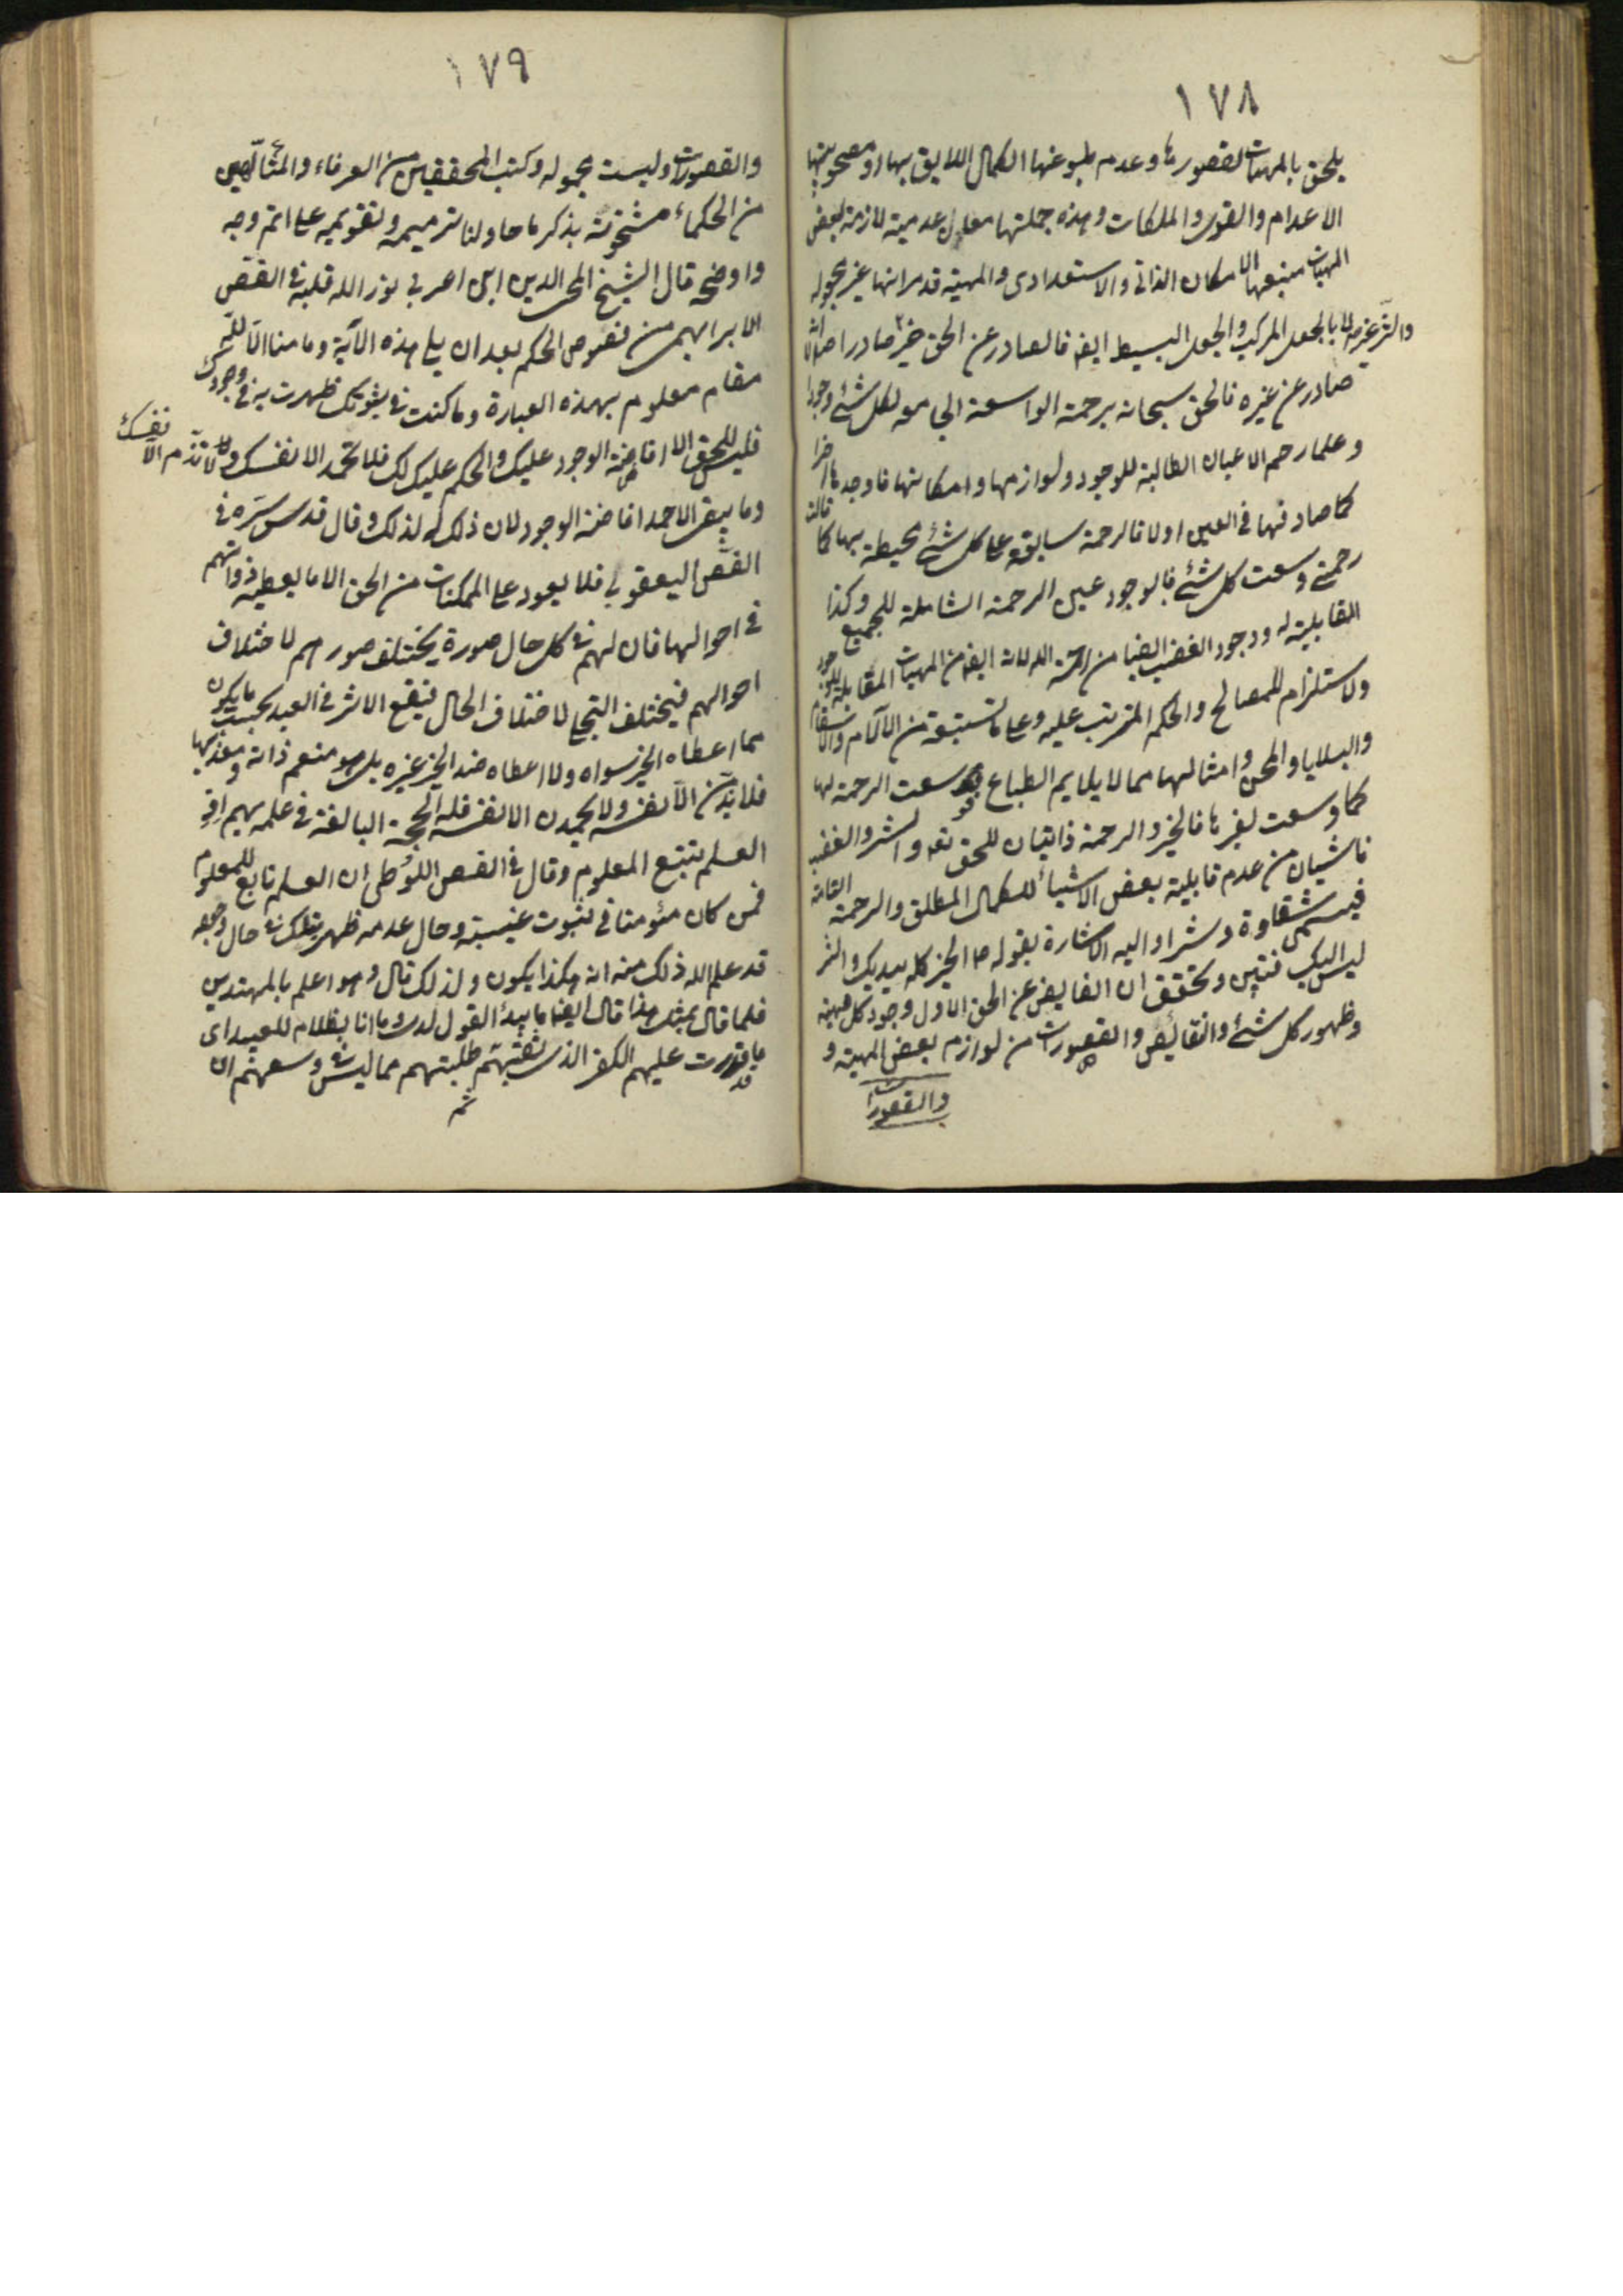 ١٧٨
يلحق بالمهيات لقصورها وعدم بلوغها الكمال اللايق بها او مصحوبيتها
الاعدام والقوى والملكات وهذه جملتها معان عدمية لازمة لبعض
المهيات منبعها الامكان الذاتى والاستعدادى والمهية قد مر انها غير مجعوله
لا بالجعل المركب والجعل البسيط ايضا فالصادر عن الحق خير صادر اصلا والشر غير
صادر عن غيره فالحق سبحانه برحمته الواسعة الجامعه لكل شئ وجودا
وعلما رحم الاعيان الطالبة للوجود ولوازمها وامكانتها فاوجدها اخرا
كما صادفها فى العين اولا فالرحمة سابقه على كل شئ محيطة بها كما قالت
رحمتى وسعت كل شئ فالوجود عين الرحمة الشاملة للجميع وكذا
القابلية له ووجود الغضب ايضا من رحمة الله لانه ايضا من المهيات القابلة للوجود
ولاستلزام للمصالح والحكم المترتب عليه وعلى ما تستتبعه من الآلام والاسقام
والبلايا والمحن وامثالها مما لا يلايم الطباع فوسعت الرحمة لها
كما وسعت لغيرها فالخير والرحمة ذاتيان للحق تعه والشر والغضب
ناشيان من عدم قابلية بعض الاشياء للكمال المطلق والرحمة التامة
فيسمى شقاوة وشرا واليه الاشارة بقوله ص الخير كله بيديك والشر
ليس اليك فتبين وتحقق ان الفايض عن الحق الاول وجود كل مهية
وظهور كل شئ والنقايص والقصورات من لوازم بعض المهية و
والقصورات
١٧٩
والقصورات وليست مجعوله وكتب المحققين من العرفاء والمتألهين
من الحكماء مشحونة بذكر ما حاولنا ترميمه وتقويمه على اتم وجه
واوضحه قال الشيخ المحى الدين ابن اعربى نور الله قلبه فى الفص
الابراهيمى من فصوص الحكم بعد ان يلى هذه الآية وما منا الا لله
مقام معلوم بهذه العبارة وما كنت فى ثبوتك ظهرت به فى وجودك
فليس للحق الا افاضة الوجود عليك والحكم عليك لك فلا تحمد الا نفسك ولا تذم الا نفسك
وما يبقى الا حمد افاضة الوجود لان ذلك له لذلك وقال قدس سره فى
الفص اليعقوبى فلا يعود على الممكنات من الحق الا ما يعطيه ذواتهم
فى احوالها فان لهم فى كل حال صورة يختلف صورهم لاختلاف
احوالهم فيختلف التجلى لاختلاف الحال فيقع الاثر فى العبد بحسب ما يكون
مما اعطاه الخير سواه ولا اعطاه ضد الخير غيره بل هو منعم ذاته ومعذبها
فلا يذمن الا نفسه ولا يحمدن الا نفسه فلله الحجة البالغة فى علمه بهم اذ
العلم يتبع المعلوم وقال فى الفص اللوطى ان العلم تابع للمعلوم
فمن كان مؤمنا فى ثبوت عينه وحال عدمه ظهر بتلك فى حال وجوده
قد علم الله ذلك منه انه هكذا يكون ولذلك قال وهو اعلم بالمهتدين
فلما قال بمثل هذا قال ايضا ما يبدل القول لدى وما انا بظلام للعبيد اى
ما قدرت عليهم الكفر الذى يشقيهم ثم طلبتهم مما ليس فى وسعهم ان